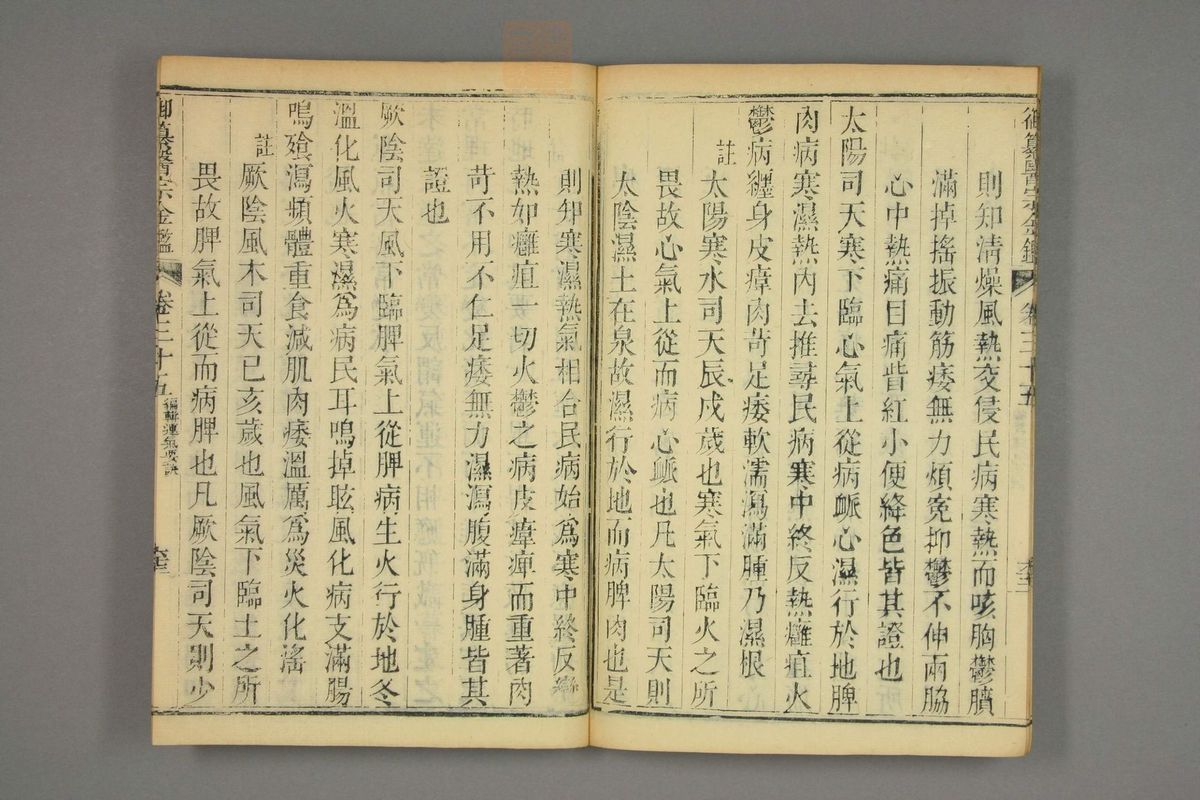 御纂醫宗金鑑 卷三十五
則知淸燥風熱交侵民病寒熱而咳胸鬱膹
滿掉搖振動筋痿無力煩寃抑鬱不伸兩脇
心中熱痛目痛眥紅小便絳色皆其證也
太陽司天寒下臨心氣上從病脈心濕行於地脾
肉病寒濕熱內去推尋民病寒中終反熱癰疽火
鬱病纏身皮㿏肉苛足痿軟濡瀉滿腫乃濕根
註
太陽寒水司天辰戌歲也寒氣下臨火之所
畏故心氣上從而病心脈也凡太陽司天則
太陰濕土在泉故濕行於地而病脾肉也是
則知寒濕熱氣相合民病始爲寒中終反變
熱如癰疽一切火鬱之病皮㿏痺而重著肉
苛不用不仁足痿無力濕瀉腹滿身腫皆其
證也
厥陰司天風下臨脾氣上從脾病生火行於地冬
溫化風火寒濕爲病民耳鳴掉眩風化病支滿腸
鳴飱瀉頻體重食減肌肉痿溫厲爲災火化淫
註
厥陰風木司天巳亥歲也風氣下臨土之所
畏故脾氣上從而病脾也凡厥陰司天則少
御纂醫宗金鑑 卷三十五 編輯運氣要訣